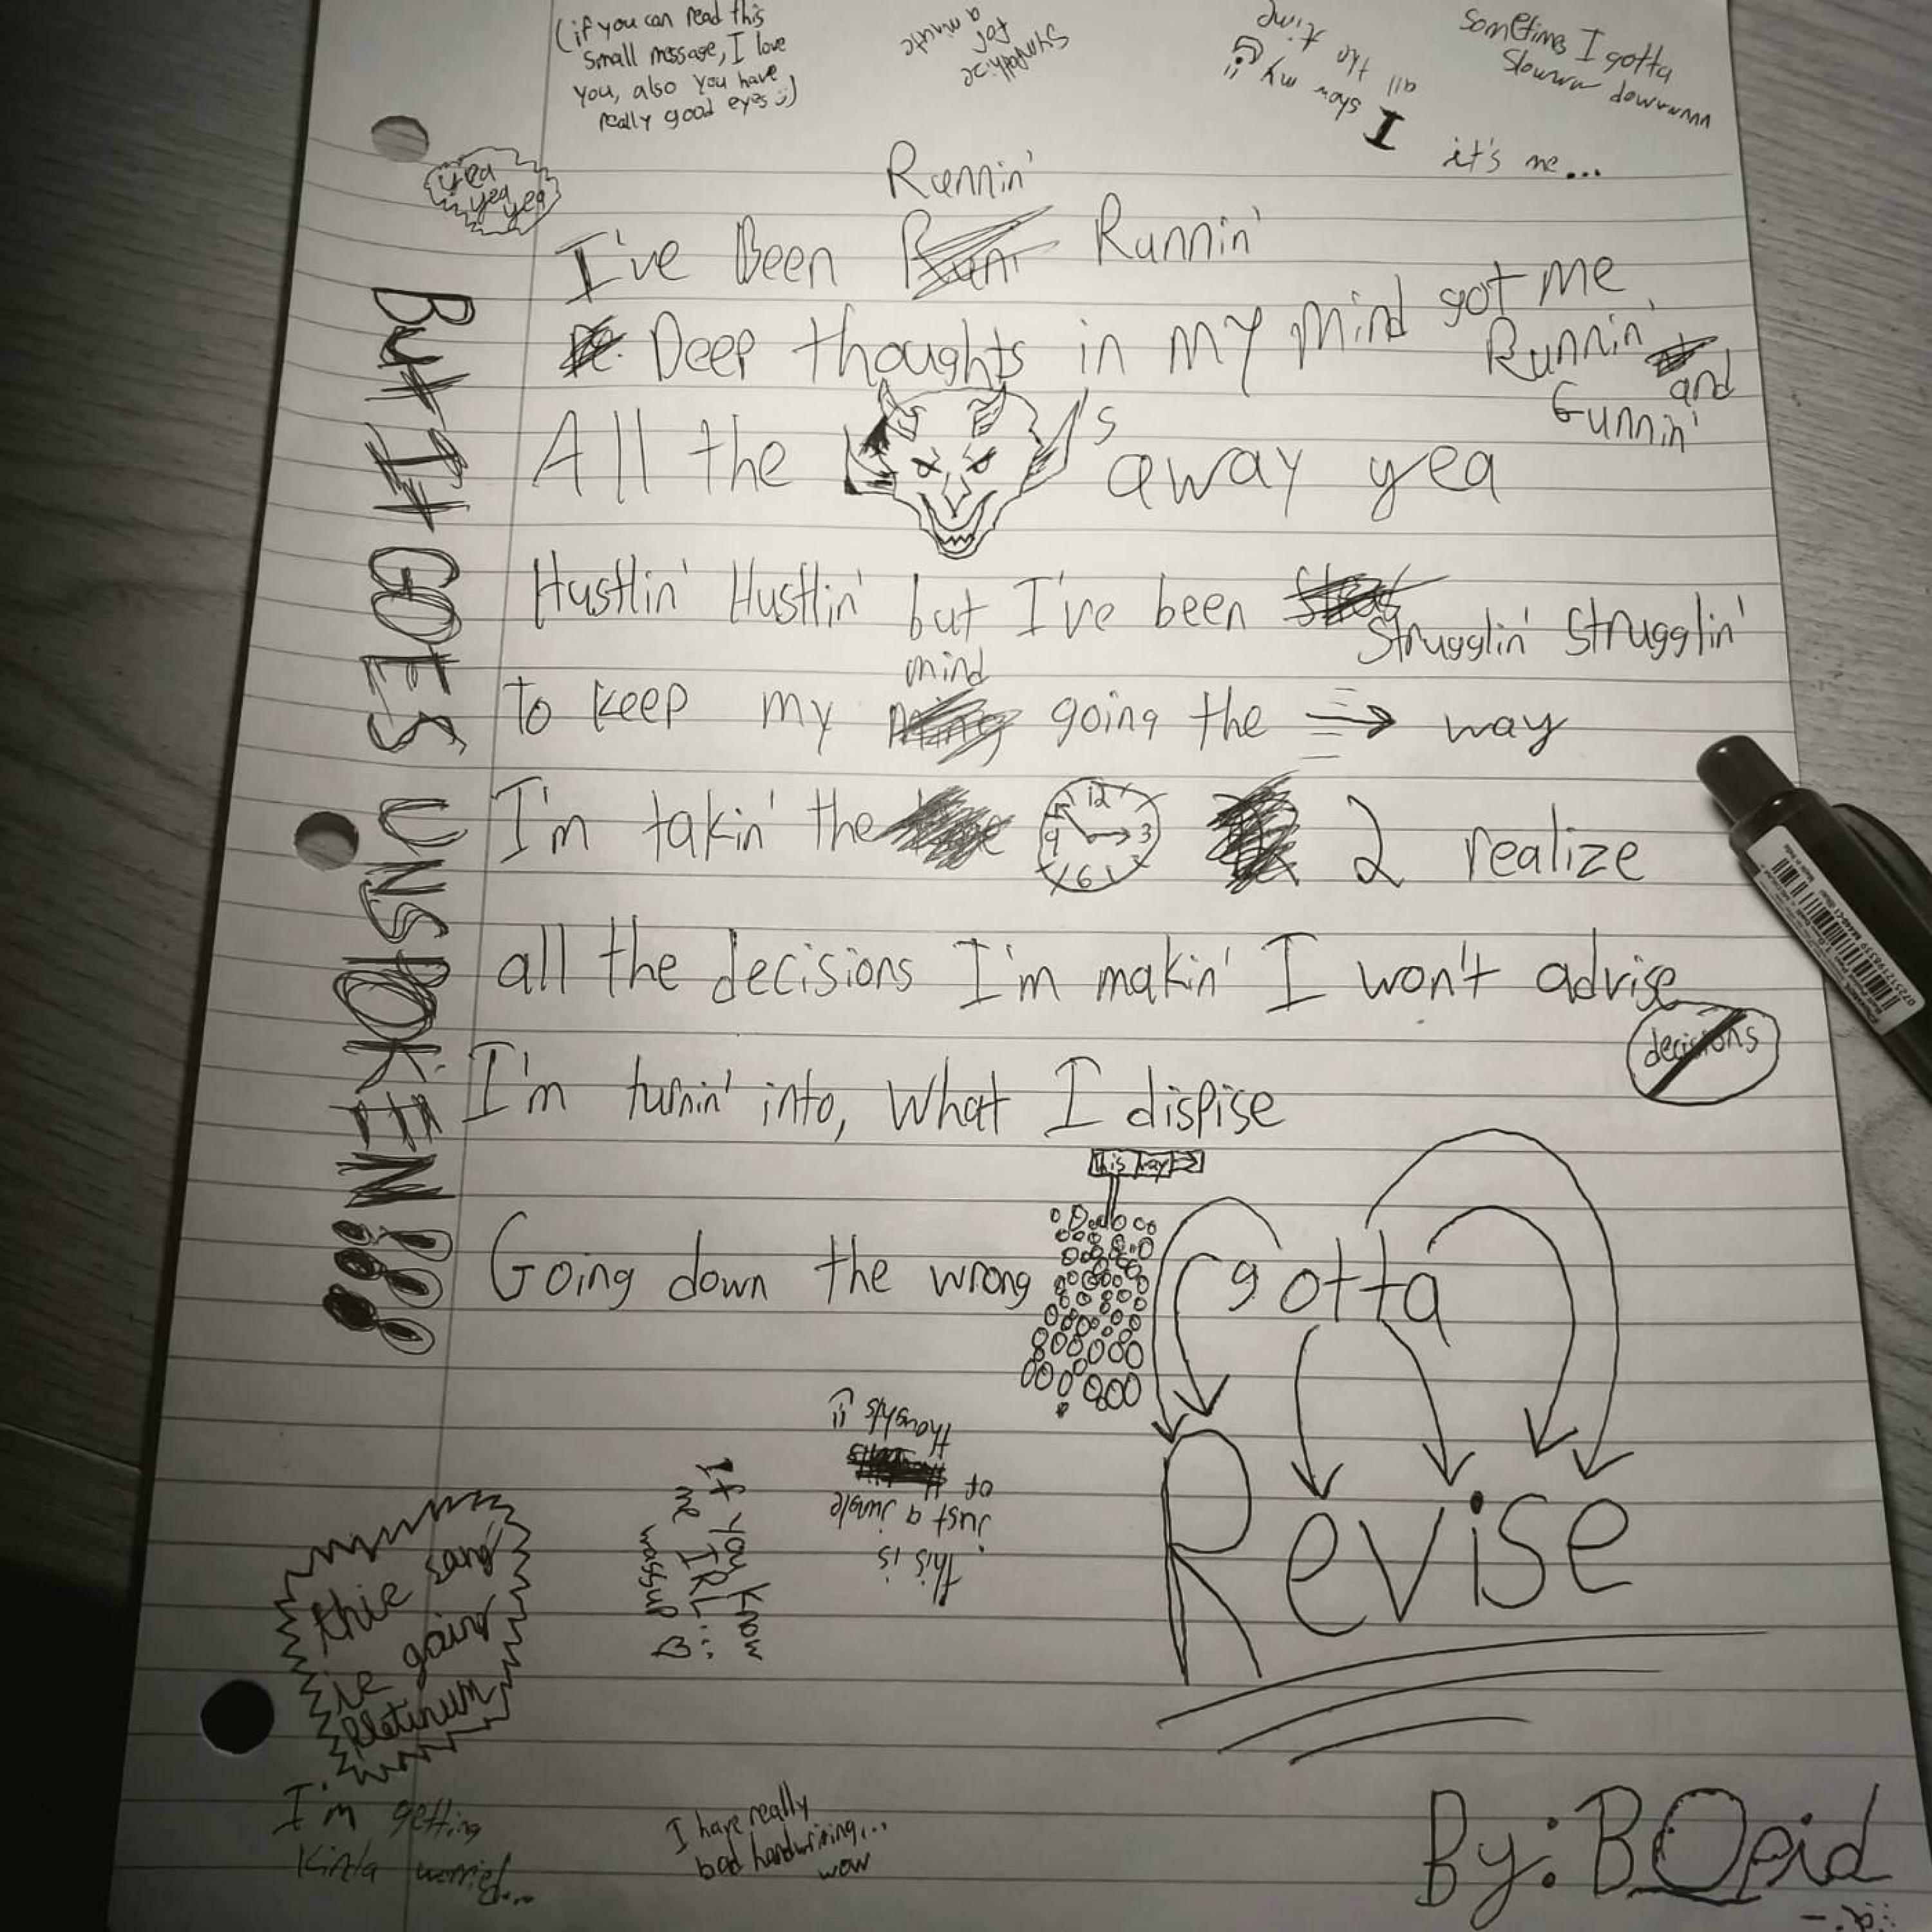 (if you can read this
small message, I love
you, also you have
really good eyes :))
Sympathize
for
a minute
I show my
all the time
Sometimes I gotta
Slowww dowwwnnn
it's me...
yea
yea yea
Runnin'
I've Been Runnin'
Deep thoughts in my mind got me
Runnin'
and
Gunnin'
All the 's away yea
Hustlin' Hustlin' but I've been
Strugglin' Strugglin'
mind
to keep my going the → way
I'm takin' the 2 realize
12
9 3
6
all the decisions I'm makin' I won't advise
decisions
I'm turnin' into, what I dispise
this way →
Going down the wrong gotta
Revise
But It GOES UNSPOKEN!!!
this is
just a jungle
of
thoughts :)
If you know
me IRL...
wassup <3
this song
is going
Platinum
I'm getting
kinda worried...
I have really
bad handwriting...
wow
By: BOpid